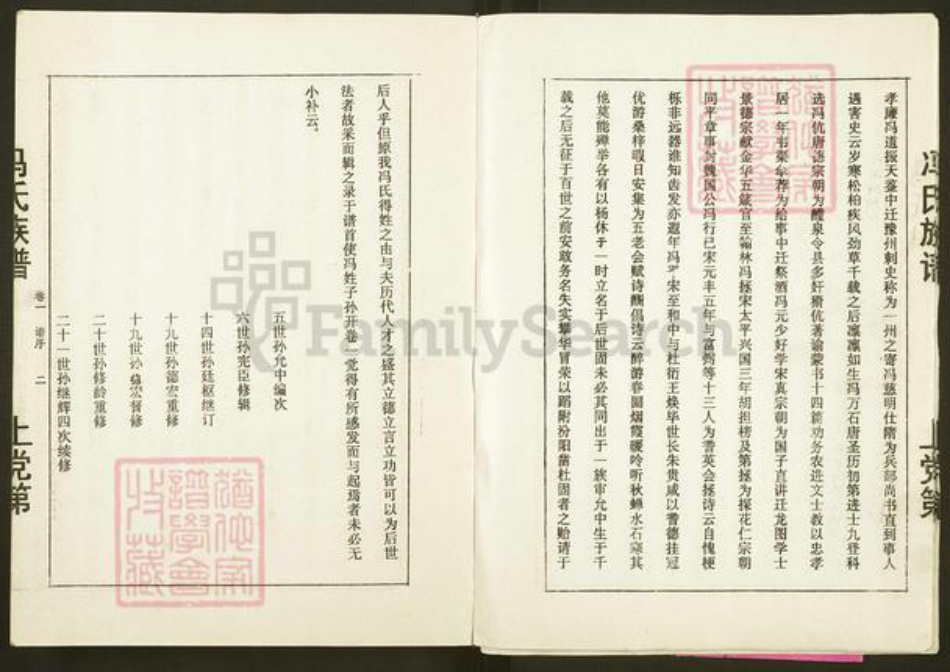 冯氏族谱
上党第
孝廉冯道振天鉴中迁豫州刺史称为一州之寄冯慈明仕隋为兵部尚书直到事人
遇害史云岁寒松柏疾风劲草千载之后凛凛如生冯万石唐圣历初第进士九登科
选冯伉唐德宗朝为醴泉令县多奸猾伉著谕蒙书十四篇劝务农进文士教以忠孝
居一年韦渠牟荐为给事中迁祭酒冯元少好学宋真宗朝为国子直讲迁龙图学士
景德宗献金华五箴官至翰林冯拯宋太平兴国三年胡担榜及第拯为探花仁宗朝
同平章事封魏国公冯行已宋元丰五年与富弼等十三人为耆英会拯诗云自愧梗
栎非远器谁知齿发亦遐年冯平宋至和中与杜衍王焕毕世长朱贵咸以耆德挂冠
优游桑梓暇日安集为五老会赋诗酬倡诗云醉游春圃烟霞暖吟听秋蝉水石寒其
他莫能殚举各有以杨休于一时立名于后世固未必其同出于一族审允中生于千
载之后无征于百世之前安敢务名失实攀华冒荣以蹈附汾阳凿杜固者之贻请于
后人乎但原我冯氏得姓之由与夫历代人才之盛其立德立言立功皆可以为后世
法者故采而辑之录于谱首使冯姓子孙开卷一觉得有所感发而与起焉者未必无
小补云。
五世孙允中编次
六世孙宪臣修辑
十四世孙廷枢继订
十九世孙德宏重修
十九世孙 宏督修
二十世孙修龄重修
二十一世孙继辉四次续修
冯氏族谱
卷一 谱序 二
上党第
FamilySearch